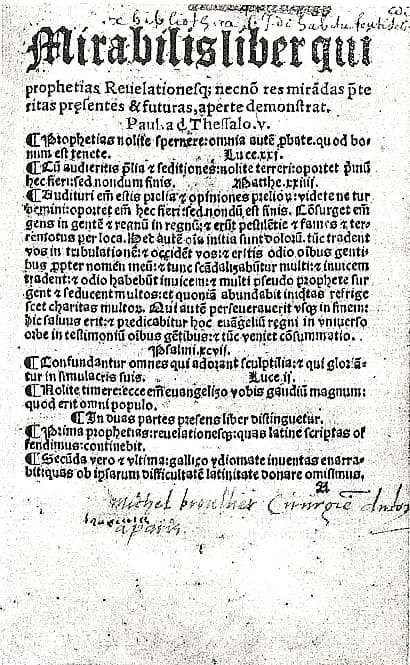 ex bibliotheca
Mirabilis liber qui
prophetias Reuelationesq; necnō res mirādas p̄te
ritas pręsentes & futuras, aperte demonstrat.
Paul. ad Thessalo. v.
¶ Prophetias nolite spernere: omnia autē ꝓbate. quod bo-
num est tenete. Luce. xxj.
¶ Cū audieritis p̄lia ⁊ seditiones: nolite terreri: oportet p̄mū
hec fieri: sed nondum finis. Matthe. xxiiij.
¶ Audituri em̄ estis prelia ⁊ opiniones prelioꝝ: videte ne tur
bemini: oportet em̄ hec fieri: sed nondū est finis. Cōsurget em̄
gens in gentē ⁊ regnū in regnū: ⁊ erūt pestilētie ⁊ fames ⁊ ter-
remotus per loca. Hec autē oīa initia sunt doloꝝ. tūc tradent
vos in tribulationē: ⁊ occidēt vos: ⁊ eritis odio oībus genti-
bus ꝓpter nomēn meū: ⁊ tunc scādalizabūtur multi: ⁊ inuicem
tradent: ⁊ odio habebūt inuicem: ⁊ multi pseudo prophete sur
gent ⁊ seducent multos: et quoniā abundabit iniq̄tas refrige
scet charitas multoꝝ. Qui autē perseuerauerit vsq̄ in finem:
hic saluus erit: ⁊ predicabitur hoc euāgeliū regni in vniuerso
orbe in testimoniū oībus gētibus: ⁊ tūc veniet cōsummatio.
Psalmi. xcvij.
¶ Confundantur omnes qui adorant sculptilia: ⁊ qui gloriā-
tur in simulacris suis. Luce. ij.
¶ Nolite timere: ecce em̄ euangelizo vobis gaudiū magnum:
quod erit omni populo.
¶ In duas partes presens liber distinguetur.
¶ Prima prophetias: reuelationesq̄: quas latine scriptas of
fendimus: continebit.
¶ Secūda vero ⁊ vltima: gallico ydiomate inuentas enarra-
bit: quas ob ipsarum difficultatem latinitate donare omisimus.
A
michel
a paris